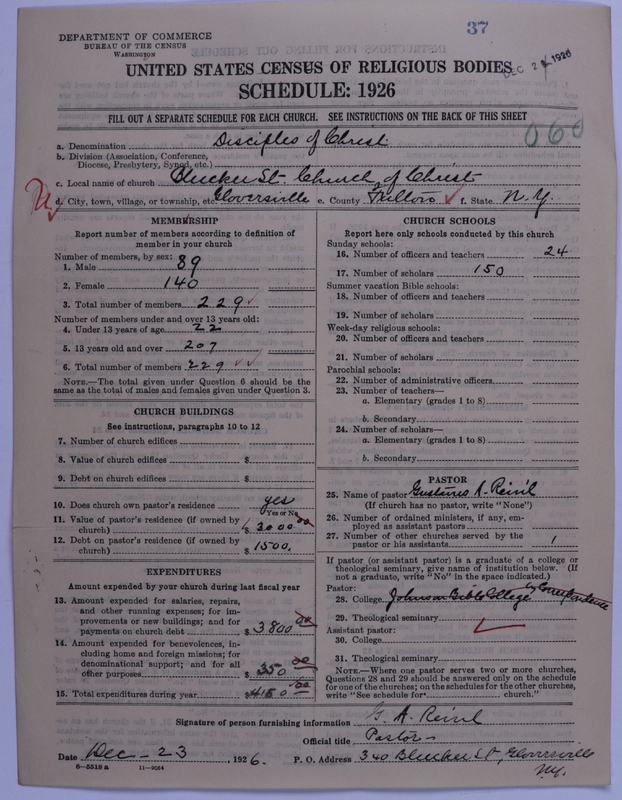 37
DEPARTMENT OF COMMERCE
BUREAU OF THE CENSUS
WASHINGTON
UNITED STATES CENSUS OF RELIGIOUS BODIES
DEC 24 1926
SCHEDULE: 1926
FILL OUT A SEPARATE SCHEDULE FOR EACH CHURCH. SEE INSTRUCTIONS ON THE BACK OF THIS SHEET
060
a. Denomination Disciples of Christ
b. Division (Association, Conference,
Diocese, Presbytery, Synod, etc.)
c. Local name of church Bleecker St Church of Christ
d. City, town, village, or township, etc. Gloversville e. County Fulton f. State N.Y.
MEMBERSHIP
Report number of members according to definition of
member in your church
Number of members, by sex:
1. Male 89
2. Female 140
3. Total number of members 229
Number of members under and over 13 years old:
4. Under 13 years of age 22
5. 13 years old and over 207
6. Total number of members 229
NOTE.—The total given under Question 6 should be the
same as the total of males and females given under Question 3.
CHURCH BUILDINGS
See instructions, paragraphs 10 to 12
7. Number of church edifices
8. Value of church edifices $
9. Debt on church edifices $
10. Does church own pastor's residence yes
Yes or No
11. Value of pastor's residence (if owned by
church) $ 3000 00
12. Debt on pastor's residence (if owned by
church) $ 1500.
EXPENDITURES
Amount expended by your church during last fiscal year
13. Amount expended for salaries, repairs,
and other running expenses; for im-
provements or new buildings; and for
payments on church debt $ 3,800 00
14. Amount expended for benevolences, in-
cluding home and foreign missions; for
denominational support; and for all
other purposes $ 350 00
15. Total expenditures during year $ 4150 00
CHURCH SCHOOLS
Report here only schools conducted by this church
Sunday schools:
16. Number of officers and teachers 24
17. Number of scholars 150
Summer vacation Bible schools:
18. Number of officers and teachers
19. Number of scholars
Week-day religious schools:
20. Number of officers and teachers
21. Number of scholars
Parochial schools:
22. Number of administrative officers
23. Number of teachers—
a. Elementary (grades 1 to 8)
b. Secondary
24. Number of scholars—
a. Elementary (grades 1 to 8)
b. Secondary
PASTOR
25. Name of pastor A.
(If church has no pastor, write "None")
26. Number of ordained ministers, if any, em-
ployed as assistant pastors
27. Number of other churches served by the
pastor or his assistants 1
If pastor (or assistant pastor) is a graduate of a college or
theological seminary, give name of institution below. (If
not a graduate, write "No" in the space indicated.)
Pastor:
28. College Johnson Bible College by Correspondence
29. Theological seminary
Assistant pastor:
30. College
31. Theological seminary
NOTE.—Where one pastor serves two or more churches,
Questions 28 and 29 should be answered only on the schedule
for one of the churches; on the schedules for the other churches,
write "See schedule for church."
Signature of person furnishing information G. A.
Official title Pastor
Date Dec - 23, 1926. P. O. Address 340 Bleecker St, Gloversville
N.Y.
8-5518 a 11-9054